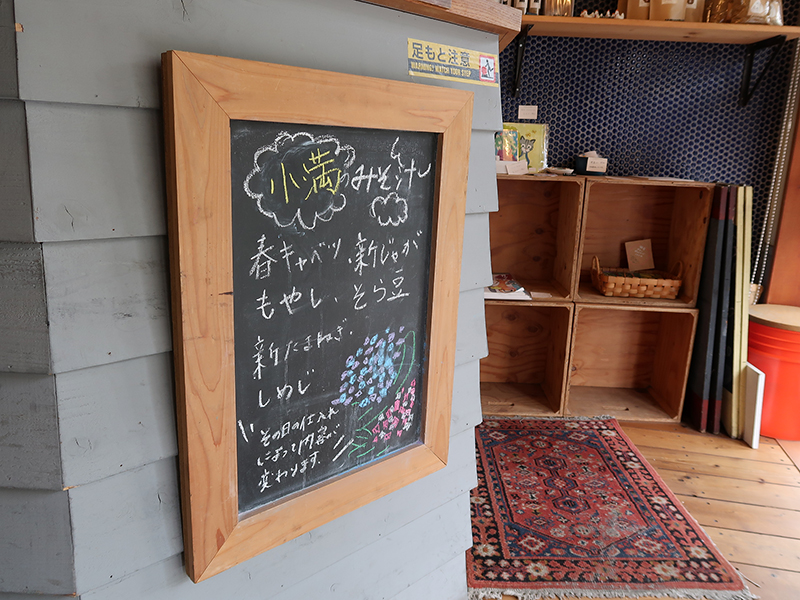 足もと注意
WARNING! WATCH YOUR STEP
小満のみそ汁
春キャベツ、新じゃが
もやし、そら豆
新たまねぎ、
しめじ
その日の仕入れ
によって内容が
変わります。